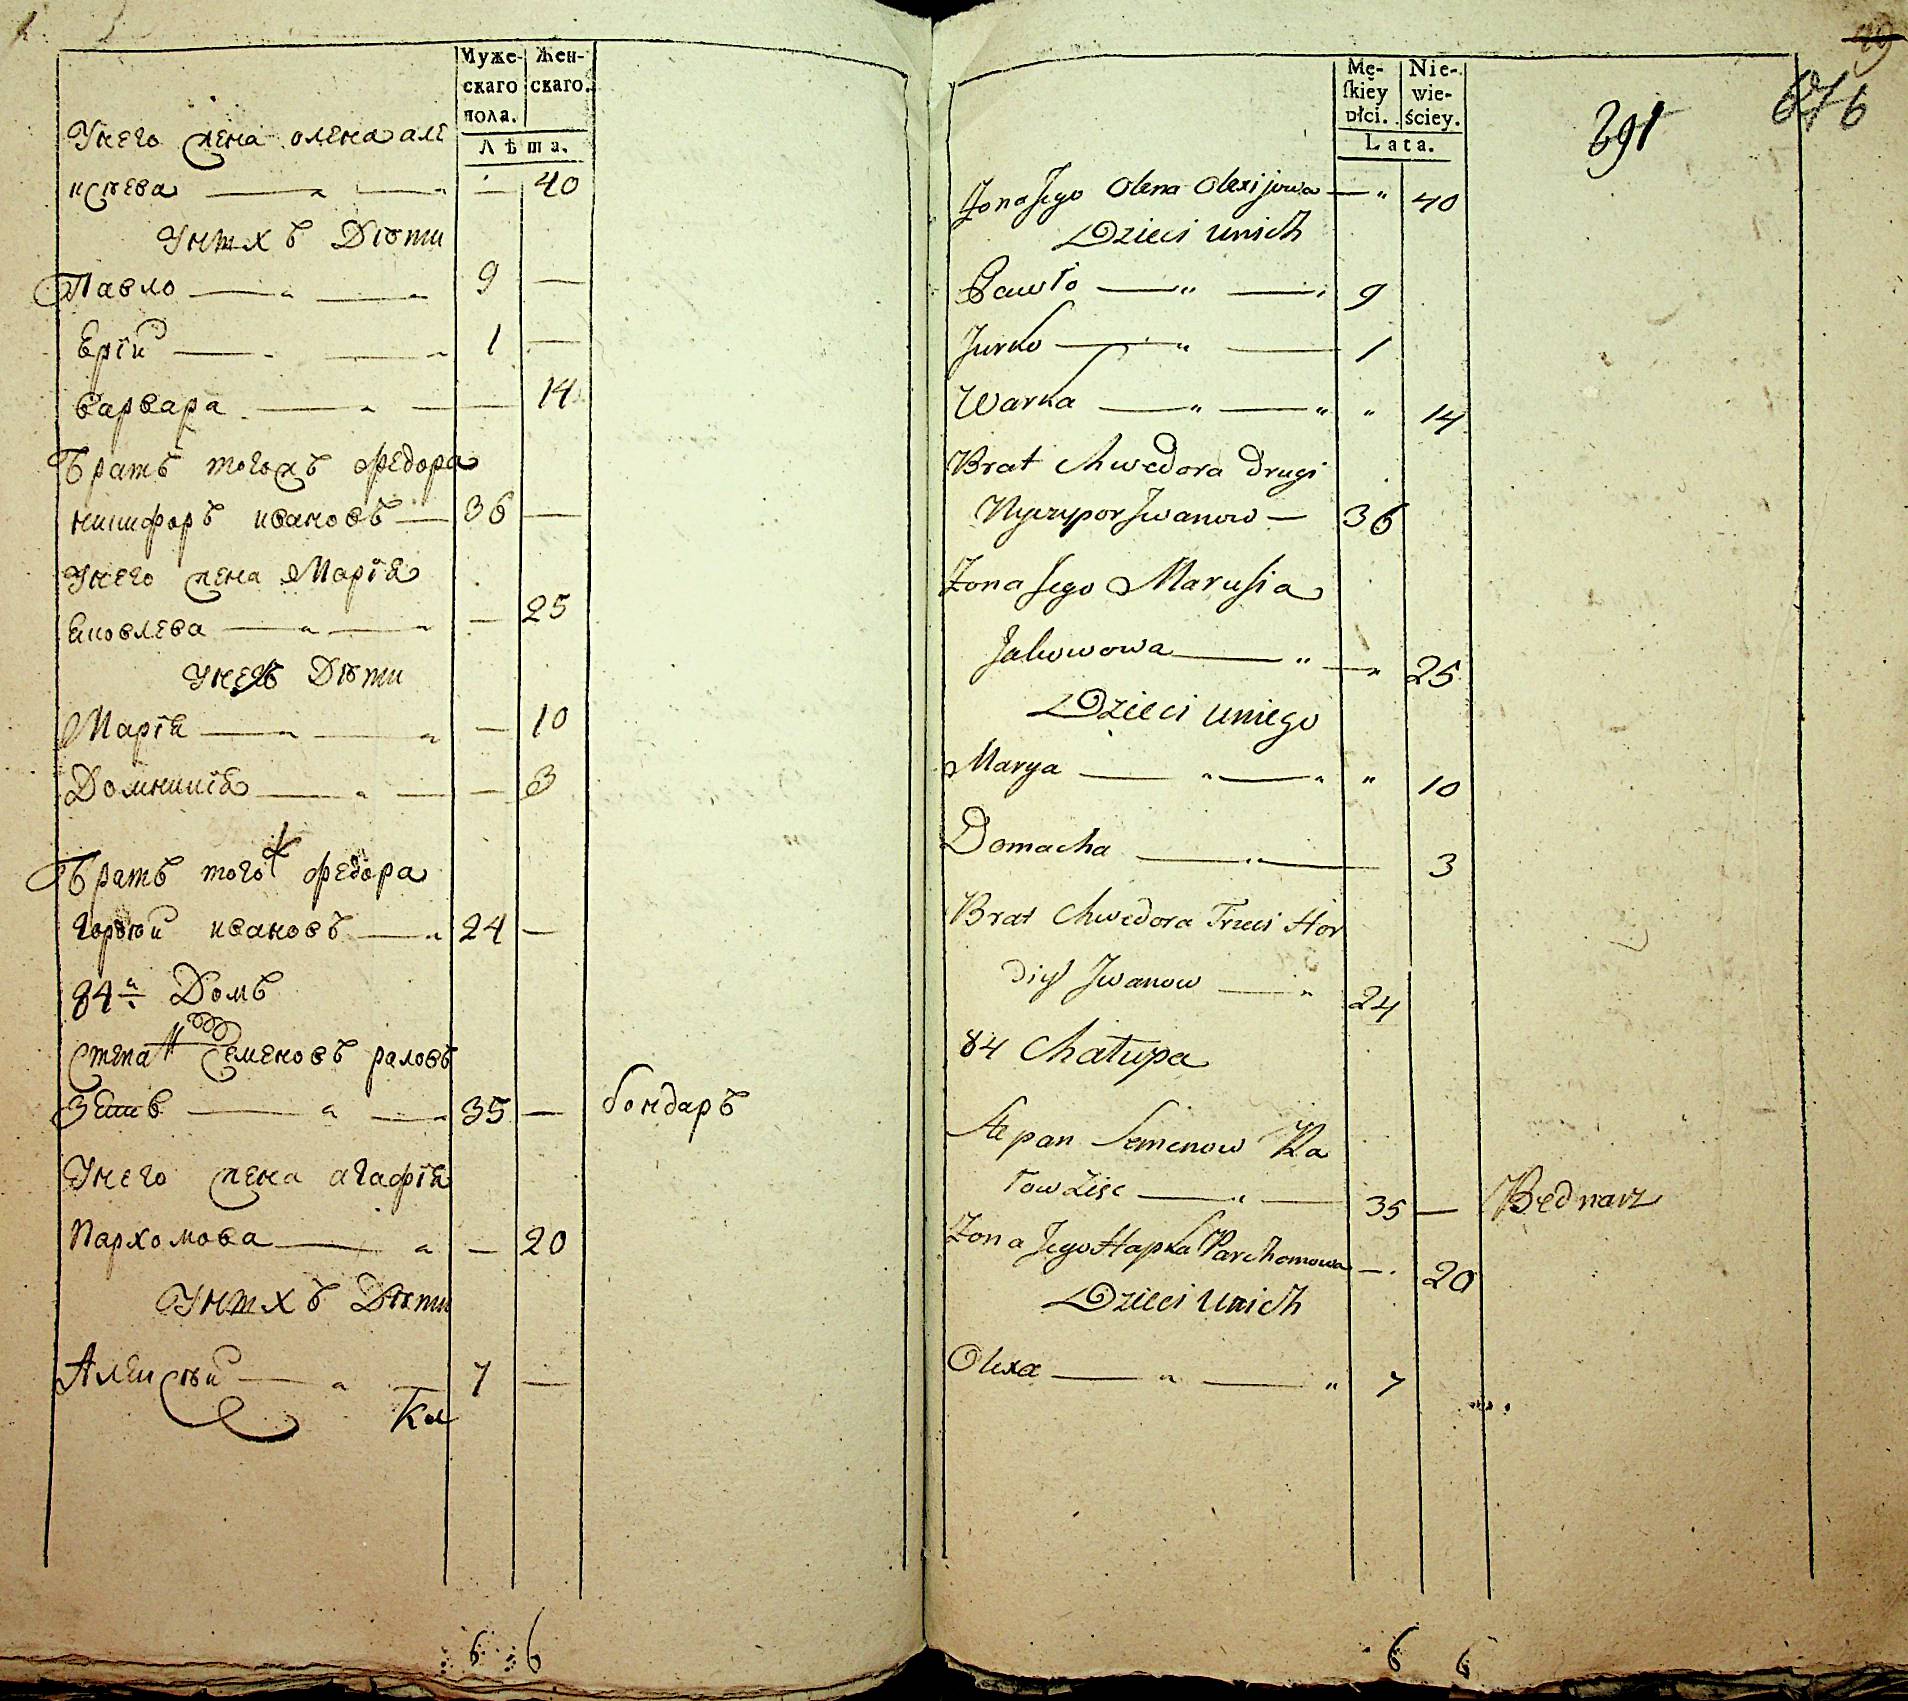 Муже-
скаго
пола.
Жен-
скаго.
Лѣта.
Унего жена олена але
иѣева 40
Унихъ Дѣти
Павло 9 —
Ергiй 1 —
варвара 14
Братъ тогожъ федора
никифоръ ивановъ — 36 —
Унего жена Марiя
яковлева — 25
Унего Дѣти
Марiя — 10
Домникiя — 3
Братъ тогож федора
Гордѣй ивановъ — 24 —
84й Домъ
Степан Семеновъ раловъ
35 — бондаръ
Унего жена агафiя
Пархомова — 20
Унихъ Дѣти
Алексѣй — 7 —
6 6
Mę-
skiey
płci.
Nie-
wie-
ściey.
Lata.
291
29
676
Zona Jego Olena Olexijowa — 40
Dzieci unich
Pawło 9
Jurko 1
Warka 14
Brat Chwedora drugi
Nyczypor Jwanow — 36
Zona Jego Marusia
Jakowowa 25
Dzieci uniego
Marya 10
Domacha 3
Brat Chwedora Trzeci Hor
diy Jwanow 24
84 Chałupa
Stepan Semenow Ra
35 — Bednarz
Zona Jego Hapka Parchomowa — 20
Dzieci unich
Olexa 7
6 6